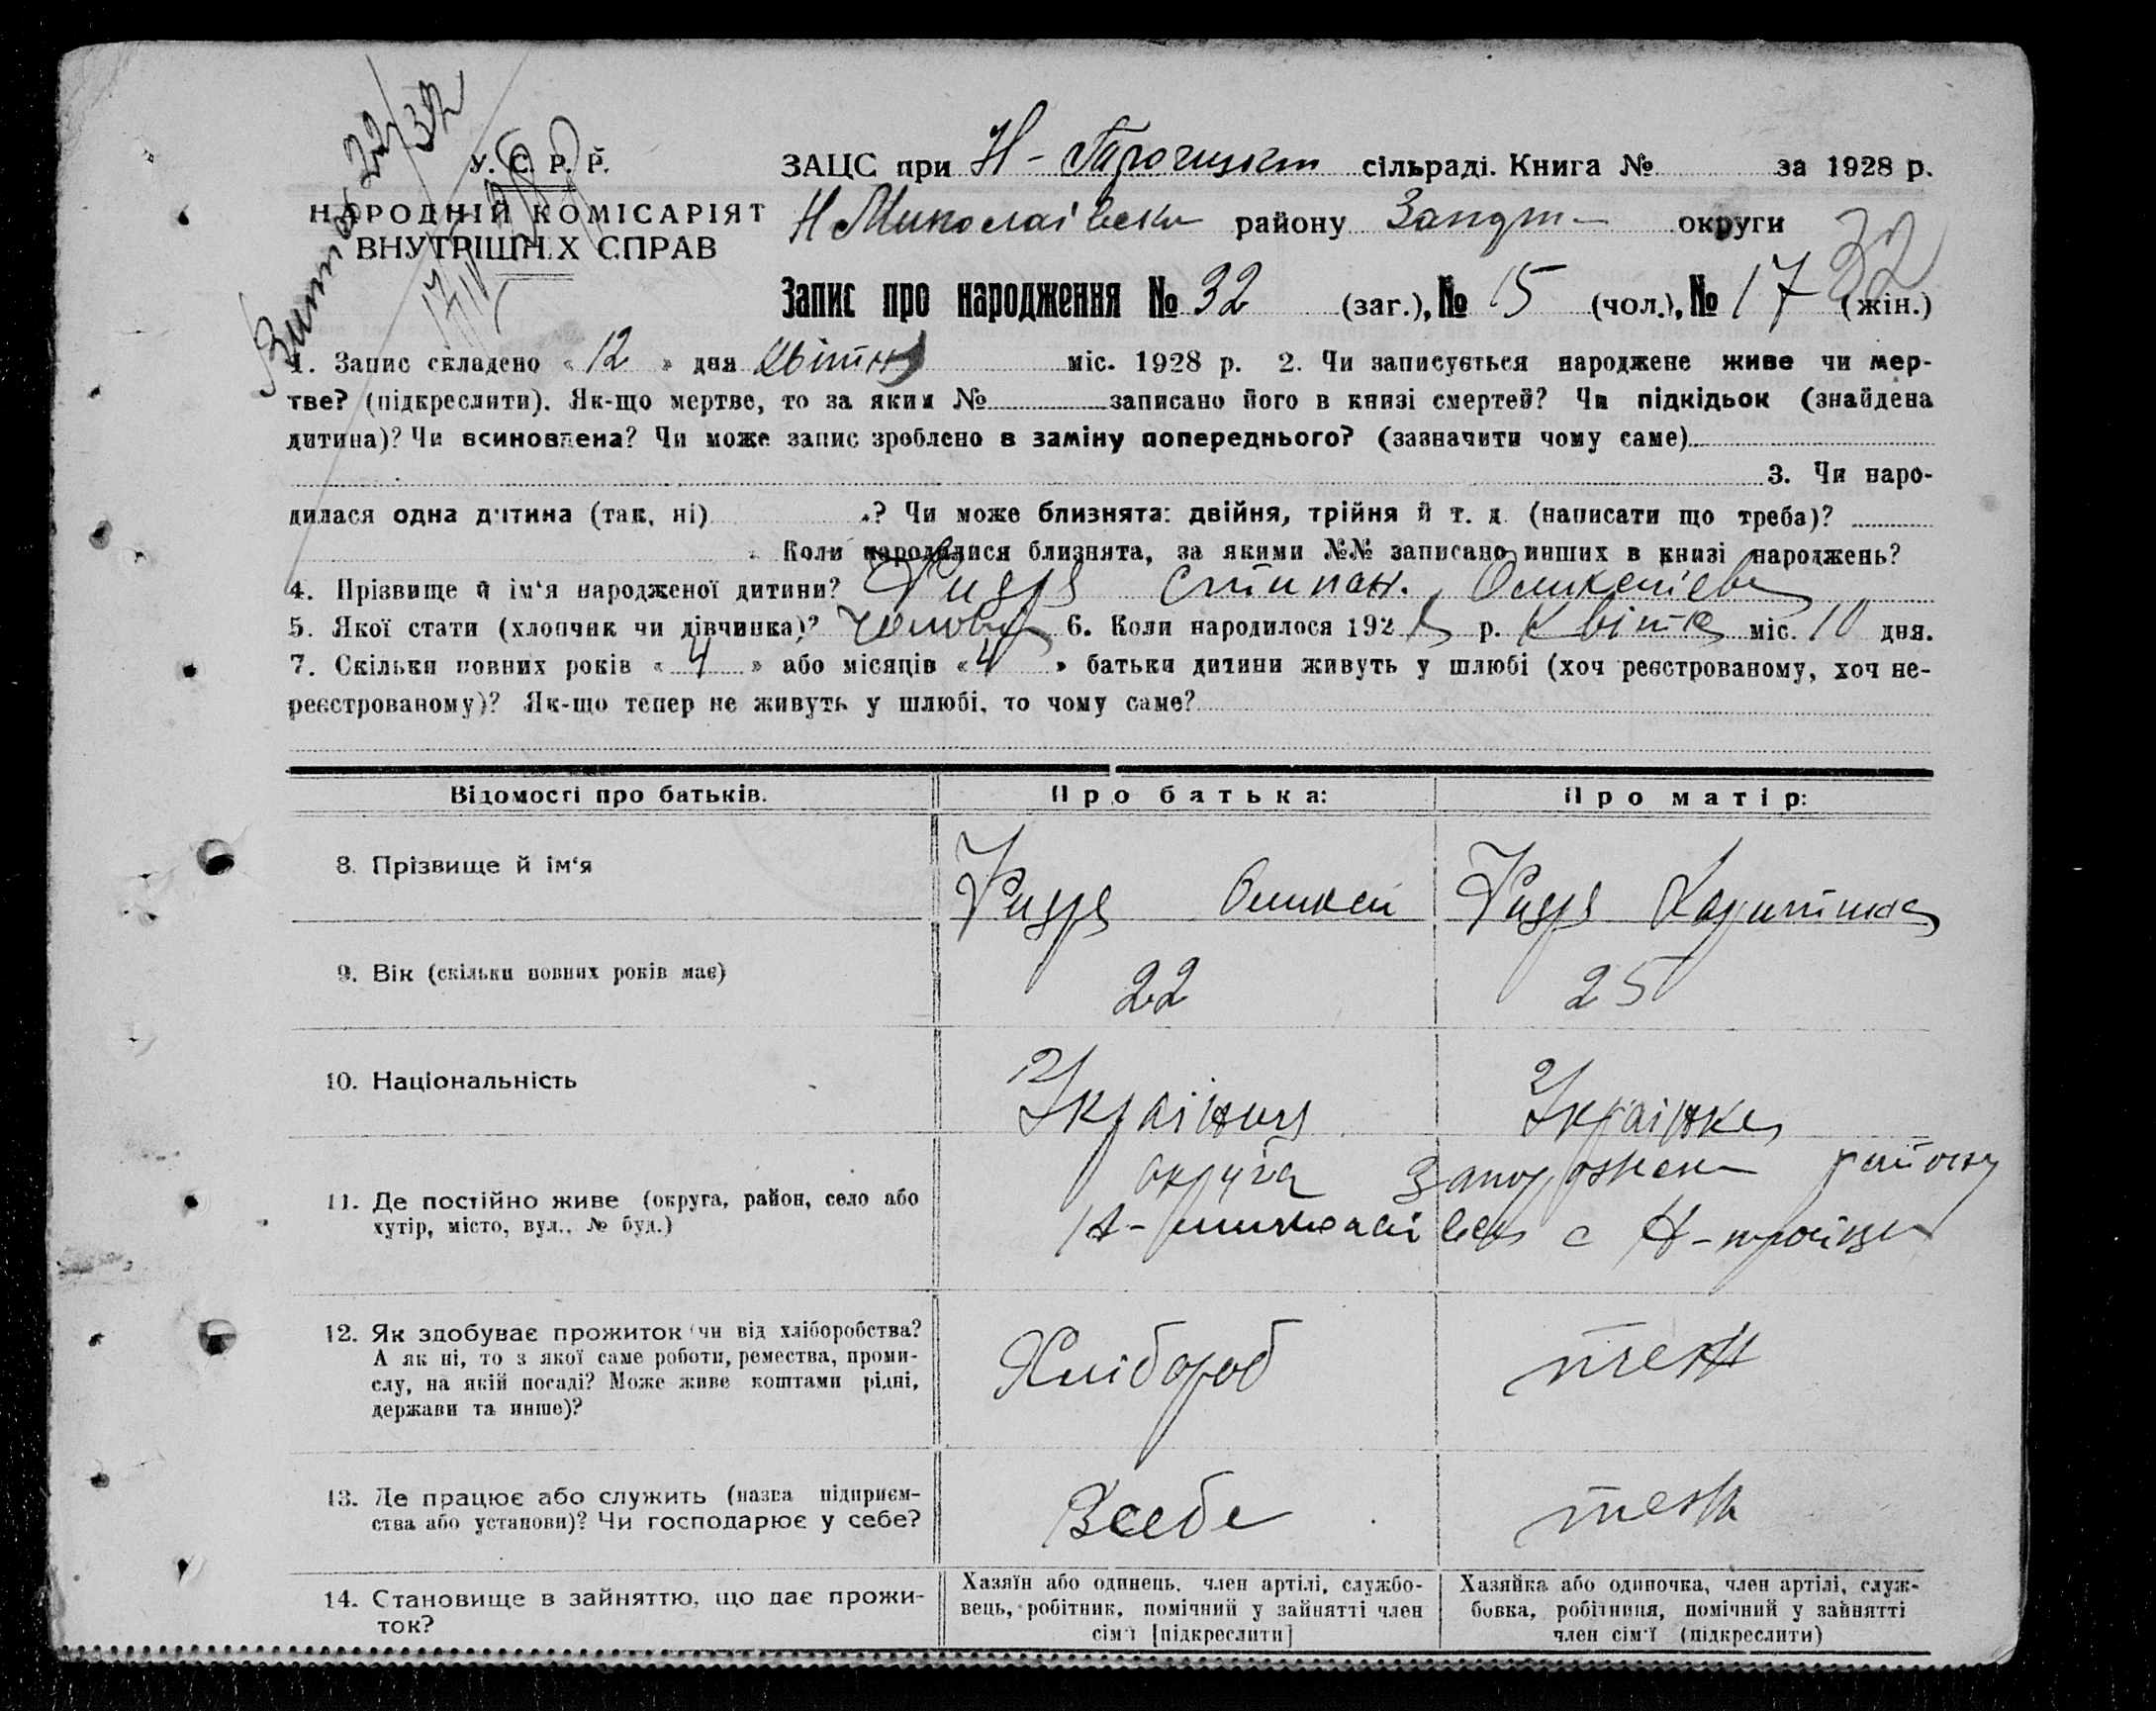 32
У. С. Р. Р.
НАРОДНІЙ КОМІСАРІЯТ
ВНУТРІШН.Х СПРАВ
ЗАЦС при Н- сільраді. Книга № за 1928 р.
Н Миколаївськ району округи
32
Запис про народження № 32 (заг.), № 15 (чол.), № 17 (жін.)
1. Запис складено « 12 » дня квітня міс. 1928 р. 2. Чи записується народжене живе чи мер-
тве? (підкреслити). Як-що мертве, то за яким № записано його в книзі смертей? Чи підкідьок (знайдена
дитина)? Чи всиновлена? Чи може запис зроблено в заміну попереднього? (зазначити чому саме)
3. Чи наро-
дилася одна дитина (так, ні) ? Чи може близнята: двійня, трійня й т. д. (написати що треба)?
Коли народилися близнята, за якими №№ записано инших в книзі народжень?
4. Прізвище й ім‘я народженої дитини?
5. Якої стати (хлопчик чи дівчинка)? 6. Коли народилося 192 р. міс. 10 дня.
7. Скільки повних років « 4 » або місяців « 4 » батьки дитини живуть у шлюбі (хоч реєстрованому, хоч не-
реєстрованому)? Як-що тепер не живуть у шлюбі, то чому саме?
Відомості про батьків. Про батька: Про матір:
8. Прізвище й ім‘я
9. Вік (скільки повних років має) 22 25
10. Національність Українец Українка
11. Де постійно живе (округа, район, село або округа району
хутір, місто, вул., № буд.) с
12. Як здобуває прожиток чи від хліборобства? Хлібороб теж
А як ні, то з якої саме роботи, ремества, проми-
слу, на якій посаді? Може живе коштами рідні,
держави та инше)?
13. Де працює або служить (назва підприєм- Всебе теж
ства або установи)? Чи господарює у себе?
14. Становище в зайняттю, що дає прожи- Хазяїн або одинець, член артілі, службо- Хазяйка або одиночка, член артілі, служ-
ток? вець, робітник, помічний у зайнятті член бовка, робітниця, помічний у зайнятті
сім‘ї [підкреслити] член сім‘ї (підкреслити)